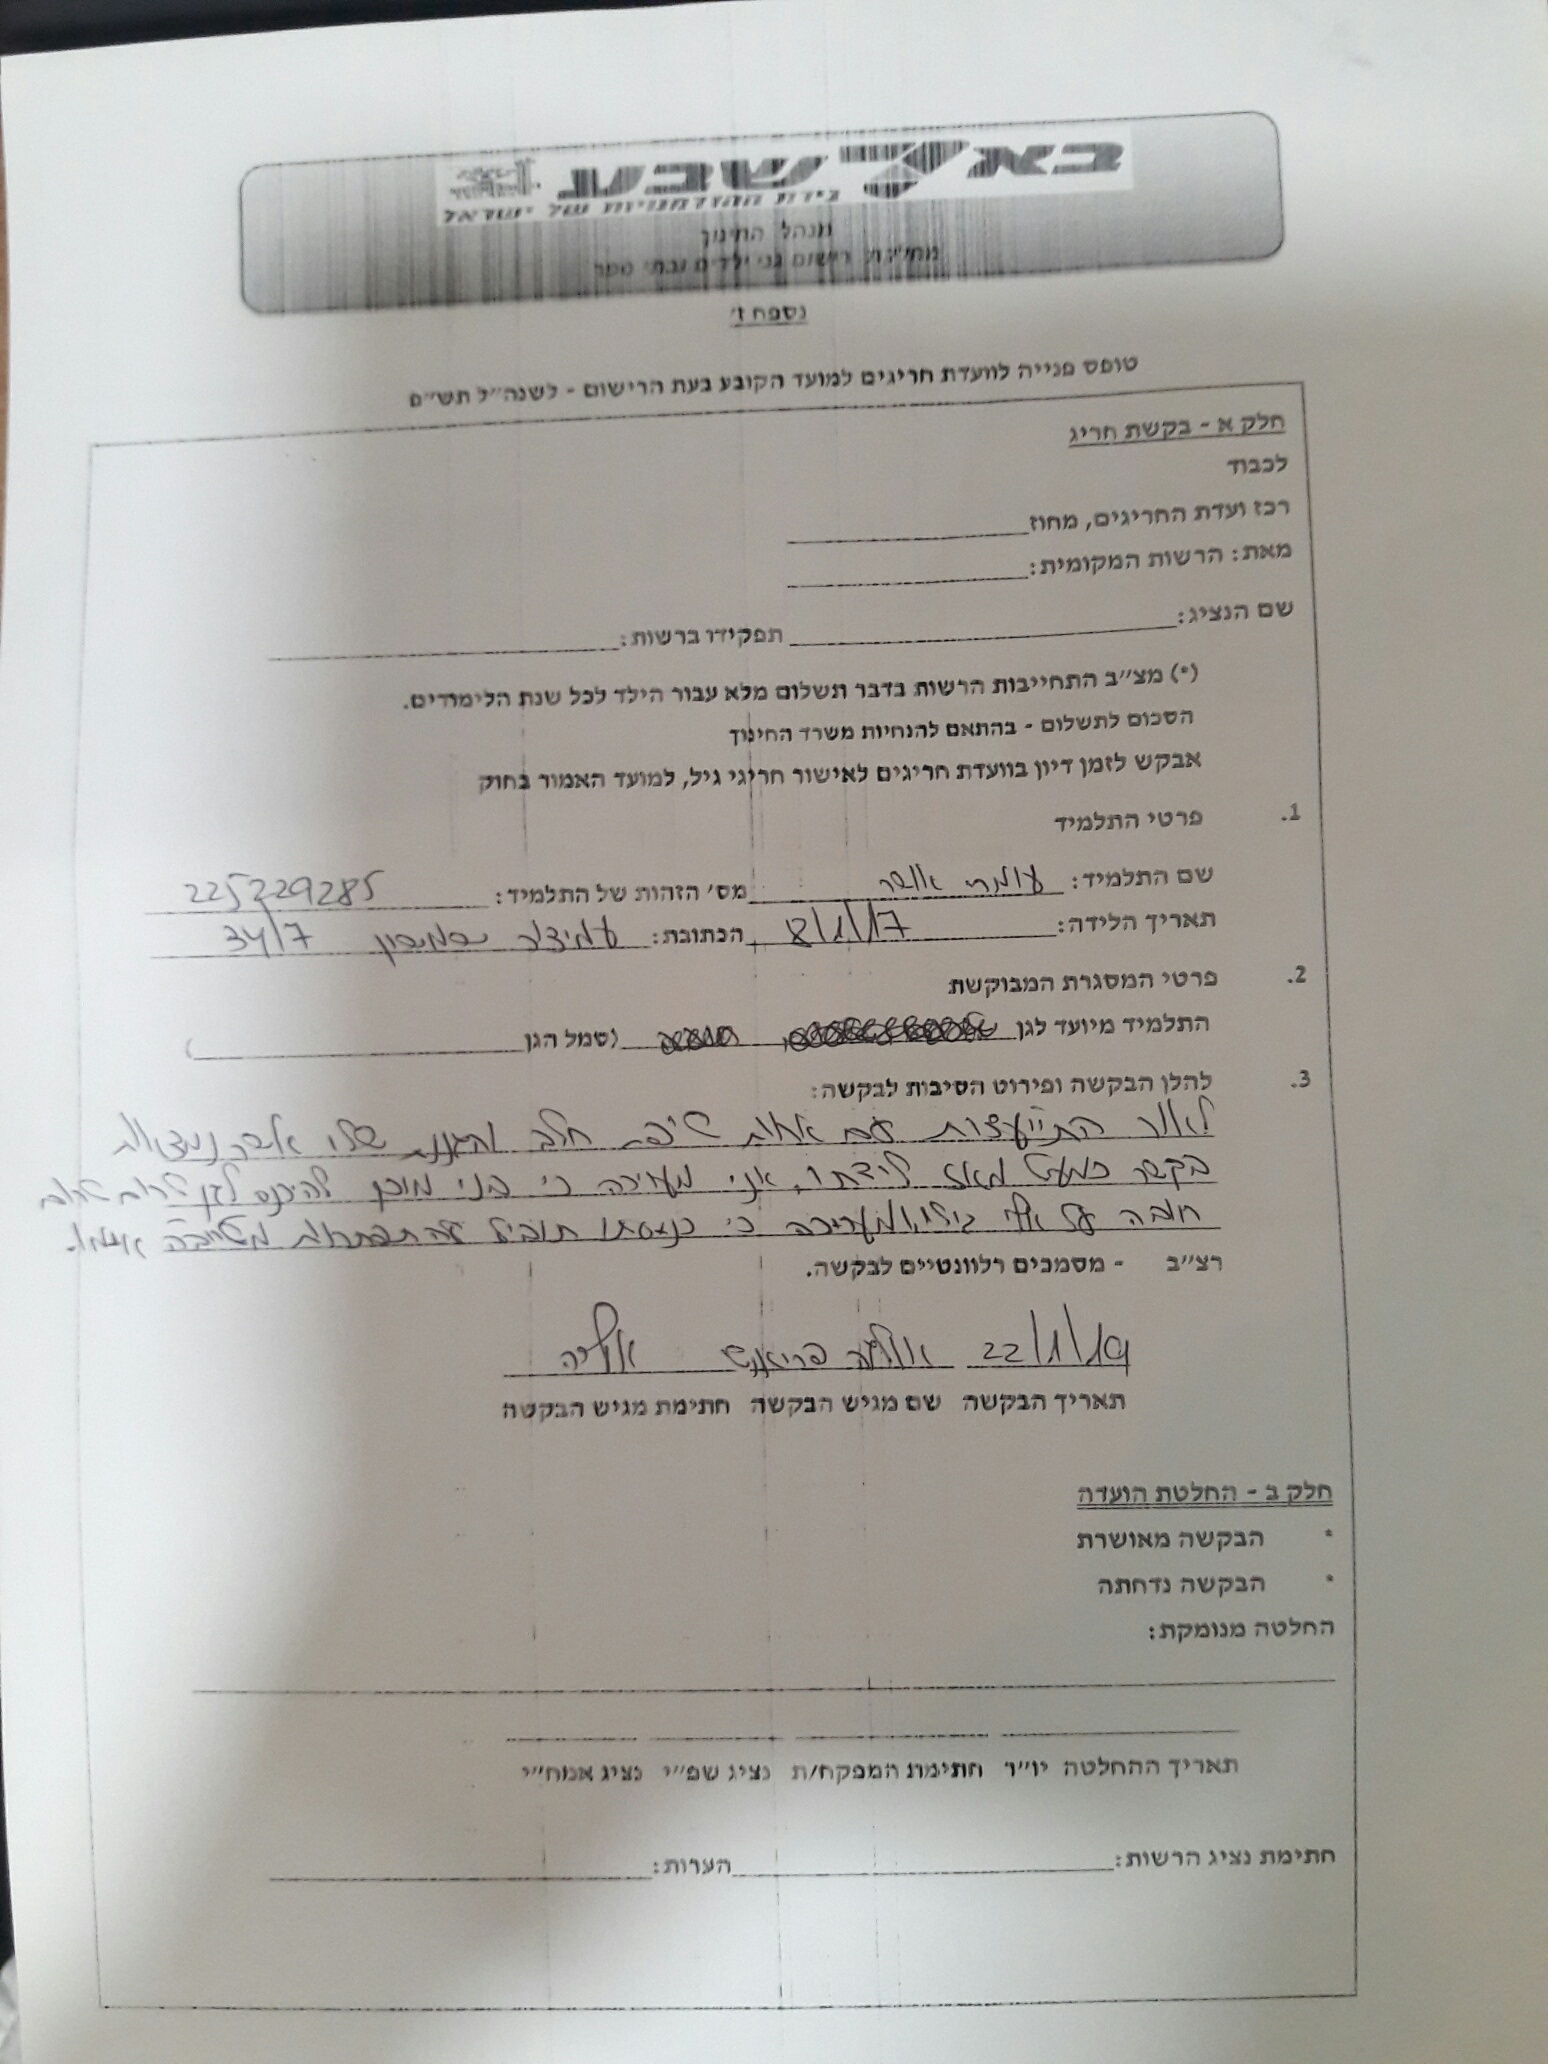 באר שבע
בירת ההזדמנויות של ישראל
מנהל החינוך
מחלקת רישום גני ילדים ובתי ספר
נספח ז'
טופס פנייה לוועדת חריגים למועד הקובע בעת הרישום - לשנה"ל תש"פ
חלק א - בקשת חריג
לכבוד
רכז ועדת החריגים, מחוז
מאת: הרשות המקומית:
שם הנציג: תפקידו ברשות:
(*) מצ"ב התחייבות הרשות בדבר תשלום מלא עבור הילד לכל שנת הלימודים.
הסכום לתשלום - בהתאם להנחיות משרד החינוך
אבקש לזמן דיון בוועדת חריגים לאישור חריגי גיל, למועד האמור בחוק
1. פרטי התלמיד
שם התלמיד: עומרי אושר מס' הזהות של התלמיד: 225229285
תאריך הלידה: 8/1/17 הכתובת: 34/7
2. פרטי המסגרת המבוקשת
התלמיד מיועד לגן (סמל הגן )
3. להלן הבקשה ופירוט הסיבות לבקשה:
לאור התייעצות עם אחות טיפת חלב והגננת שלו אשר נמצאות
בקשר כמעט מאז לידתו, אני מעריכה כי בני מוכן להיכנס לגן טרום טרום
חובה על אף גילו ומעריכה כי כניסתו תוביל להתפתחות מיטבית
רצ"ב - מסמכים רלוונטיים לבקשה.
22/1/19 אוליה
תאריך הבקשה שם מגיש הבקשה חתימת מגיש הבקשה
חלק ב - החלטת הועדה
* הבקשה מאושרת
* הבקשה נדחתה
החלטה מנומקת:
תאריך ההחלטה יו"ר חתימת המפקח/ת נציג שפ"י נציג אמח"י
חתימת נציג הרשות: הערות: